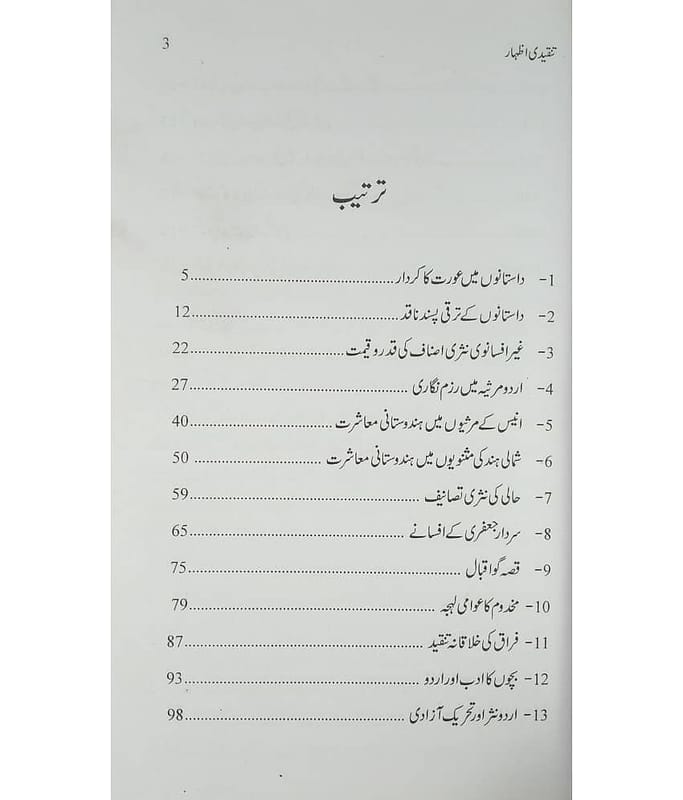 تنقیدی اظہار 3
ترتیب
1- داستانوں میں عورت کا کردار........................................5
2- داستانوں کے ترقی پسند ناقد........................................12
3- غیر افسانوی نثری اصناف کی قدر و قیمت..............................22
4- اردو مرثیہ میں رزم نگاری ........................................27
5- انیس کے مرثیوں میں ہندوستانی معاشرت ............................40
6- شمالی ہند کی مثنویوں میں ہندوستانی معاشرت ......................... 50
7- حالی کی نثری تصانیف ............................................59
8- سردار جعفری کے افسانے ..........................................65
9- قصہ گو اقبال ....................................................75
10- مخدوم کا عوامی لہجہ ..............................................79
11- فراق کی خلاقانہ تنقید ............................................87
12- بچوں کا ادب اور اردو ............................................93
13- اردو نثر اور تحریک آزادی ........................................98